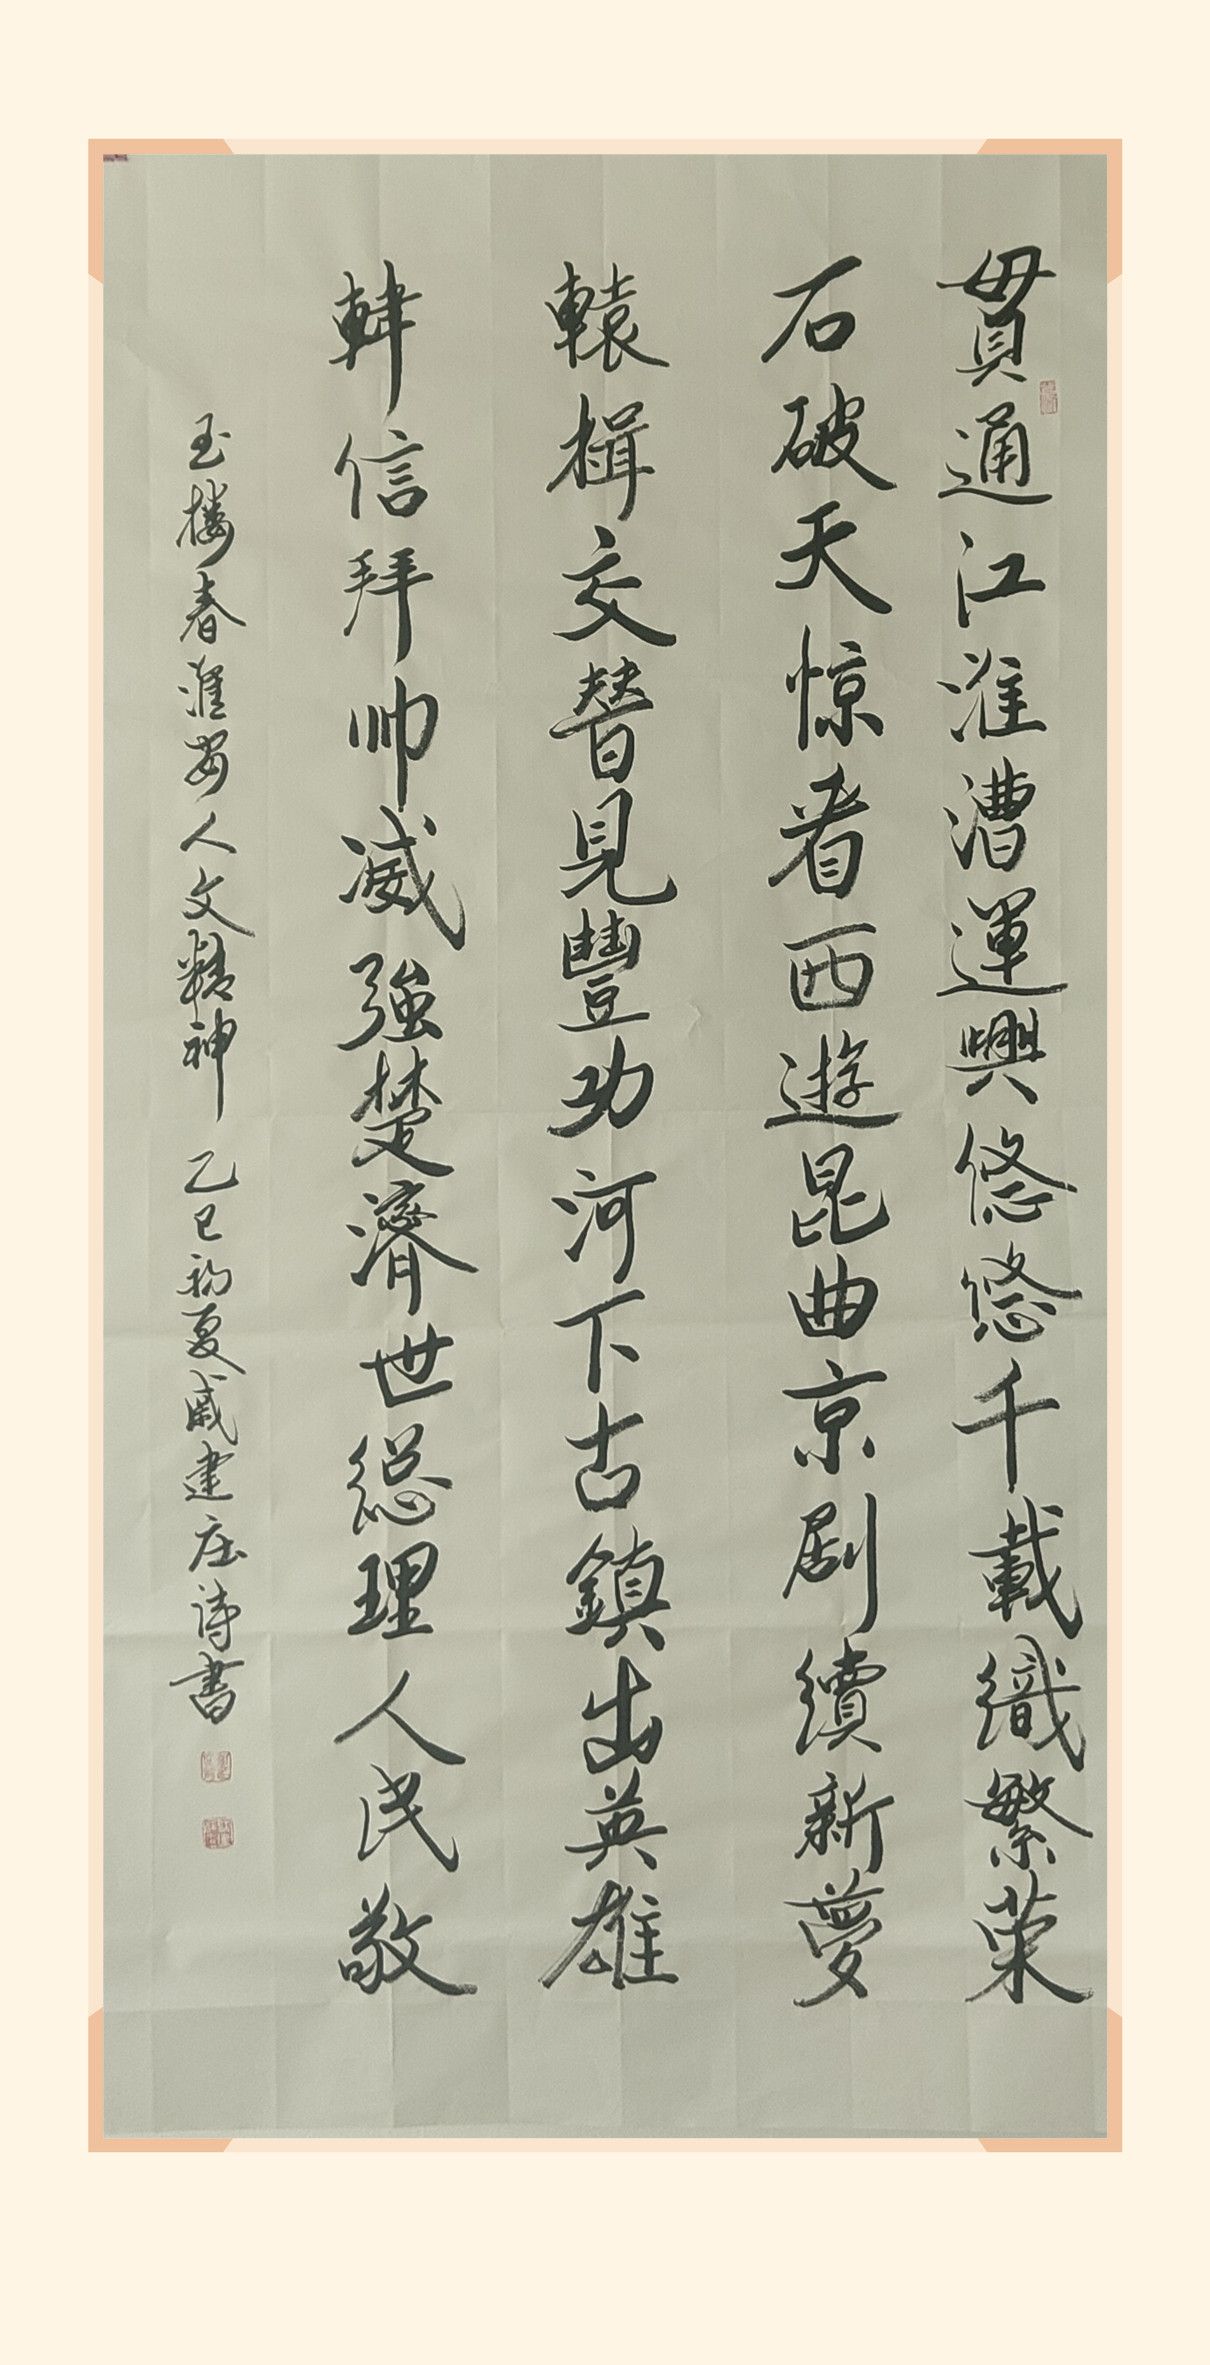 貫通江淮漕運興悠悠千載織繁荣
石破天惊看西遊昆曲京剧續新夢
轅楫交替見豐功河下古鎮出英雄
韓信拜帅威強楚濟世総理人民敬
玉楼春淮安人文精神 乙巳初夏戚建庄诗書